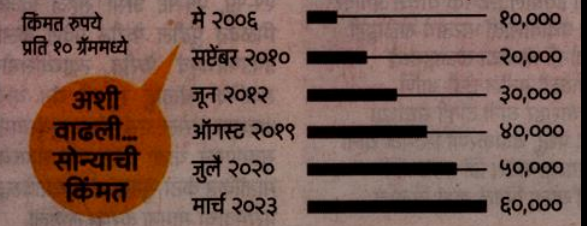 किंमत रुपये
प्रति १० ग्रॅममध्ये
अशी
वाढली...
सोन्याची
किंमत
मे २००६ १०,०००
सप्टेंबर २०१० २०,०००
जून २०१२ ३०,०००
ऑगस्ट २०१९ ४०,०००
जुलै २०२० ५०,०००
मार्च २०२३ ६०,०००